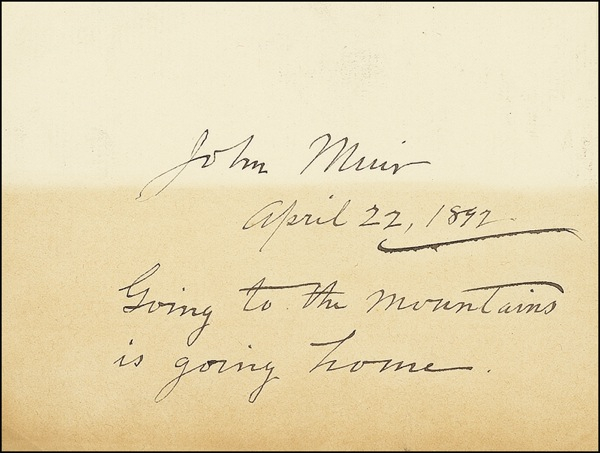 John Muir
April 22, 1892.
Going to the mountains
is going home.